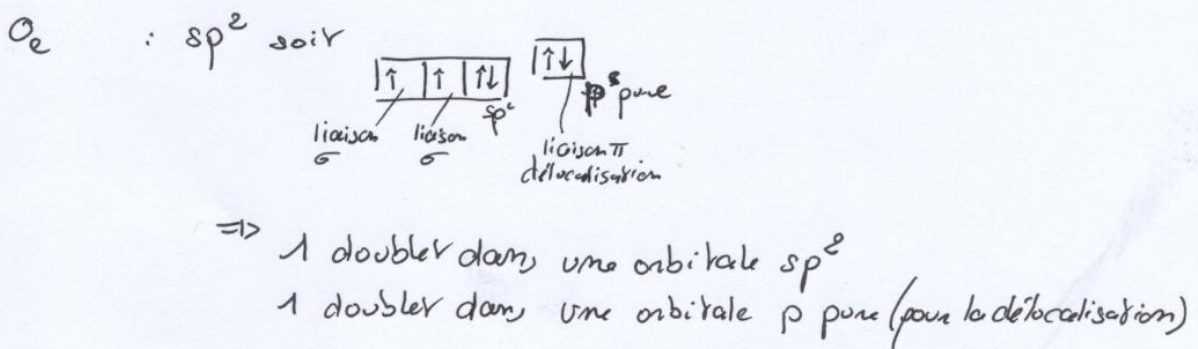 Oe : sp² soit
|↑ |↑ |↑↓| |↑↓|
sp² p pure
liaison σ liaison σ liaison π
délocalisation
=> 1 doublet dans une orbitale sp²
1 doublet dans une orbitale p pure (pour la délocalisation)